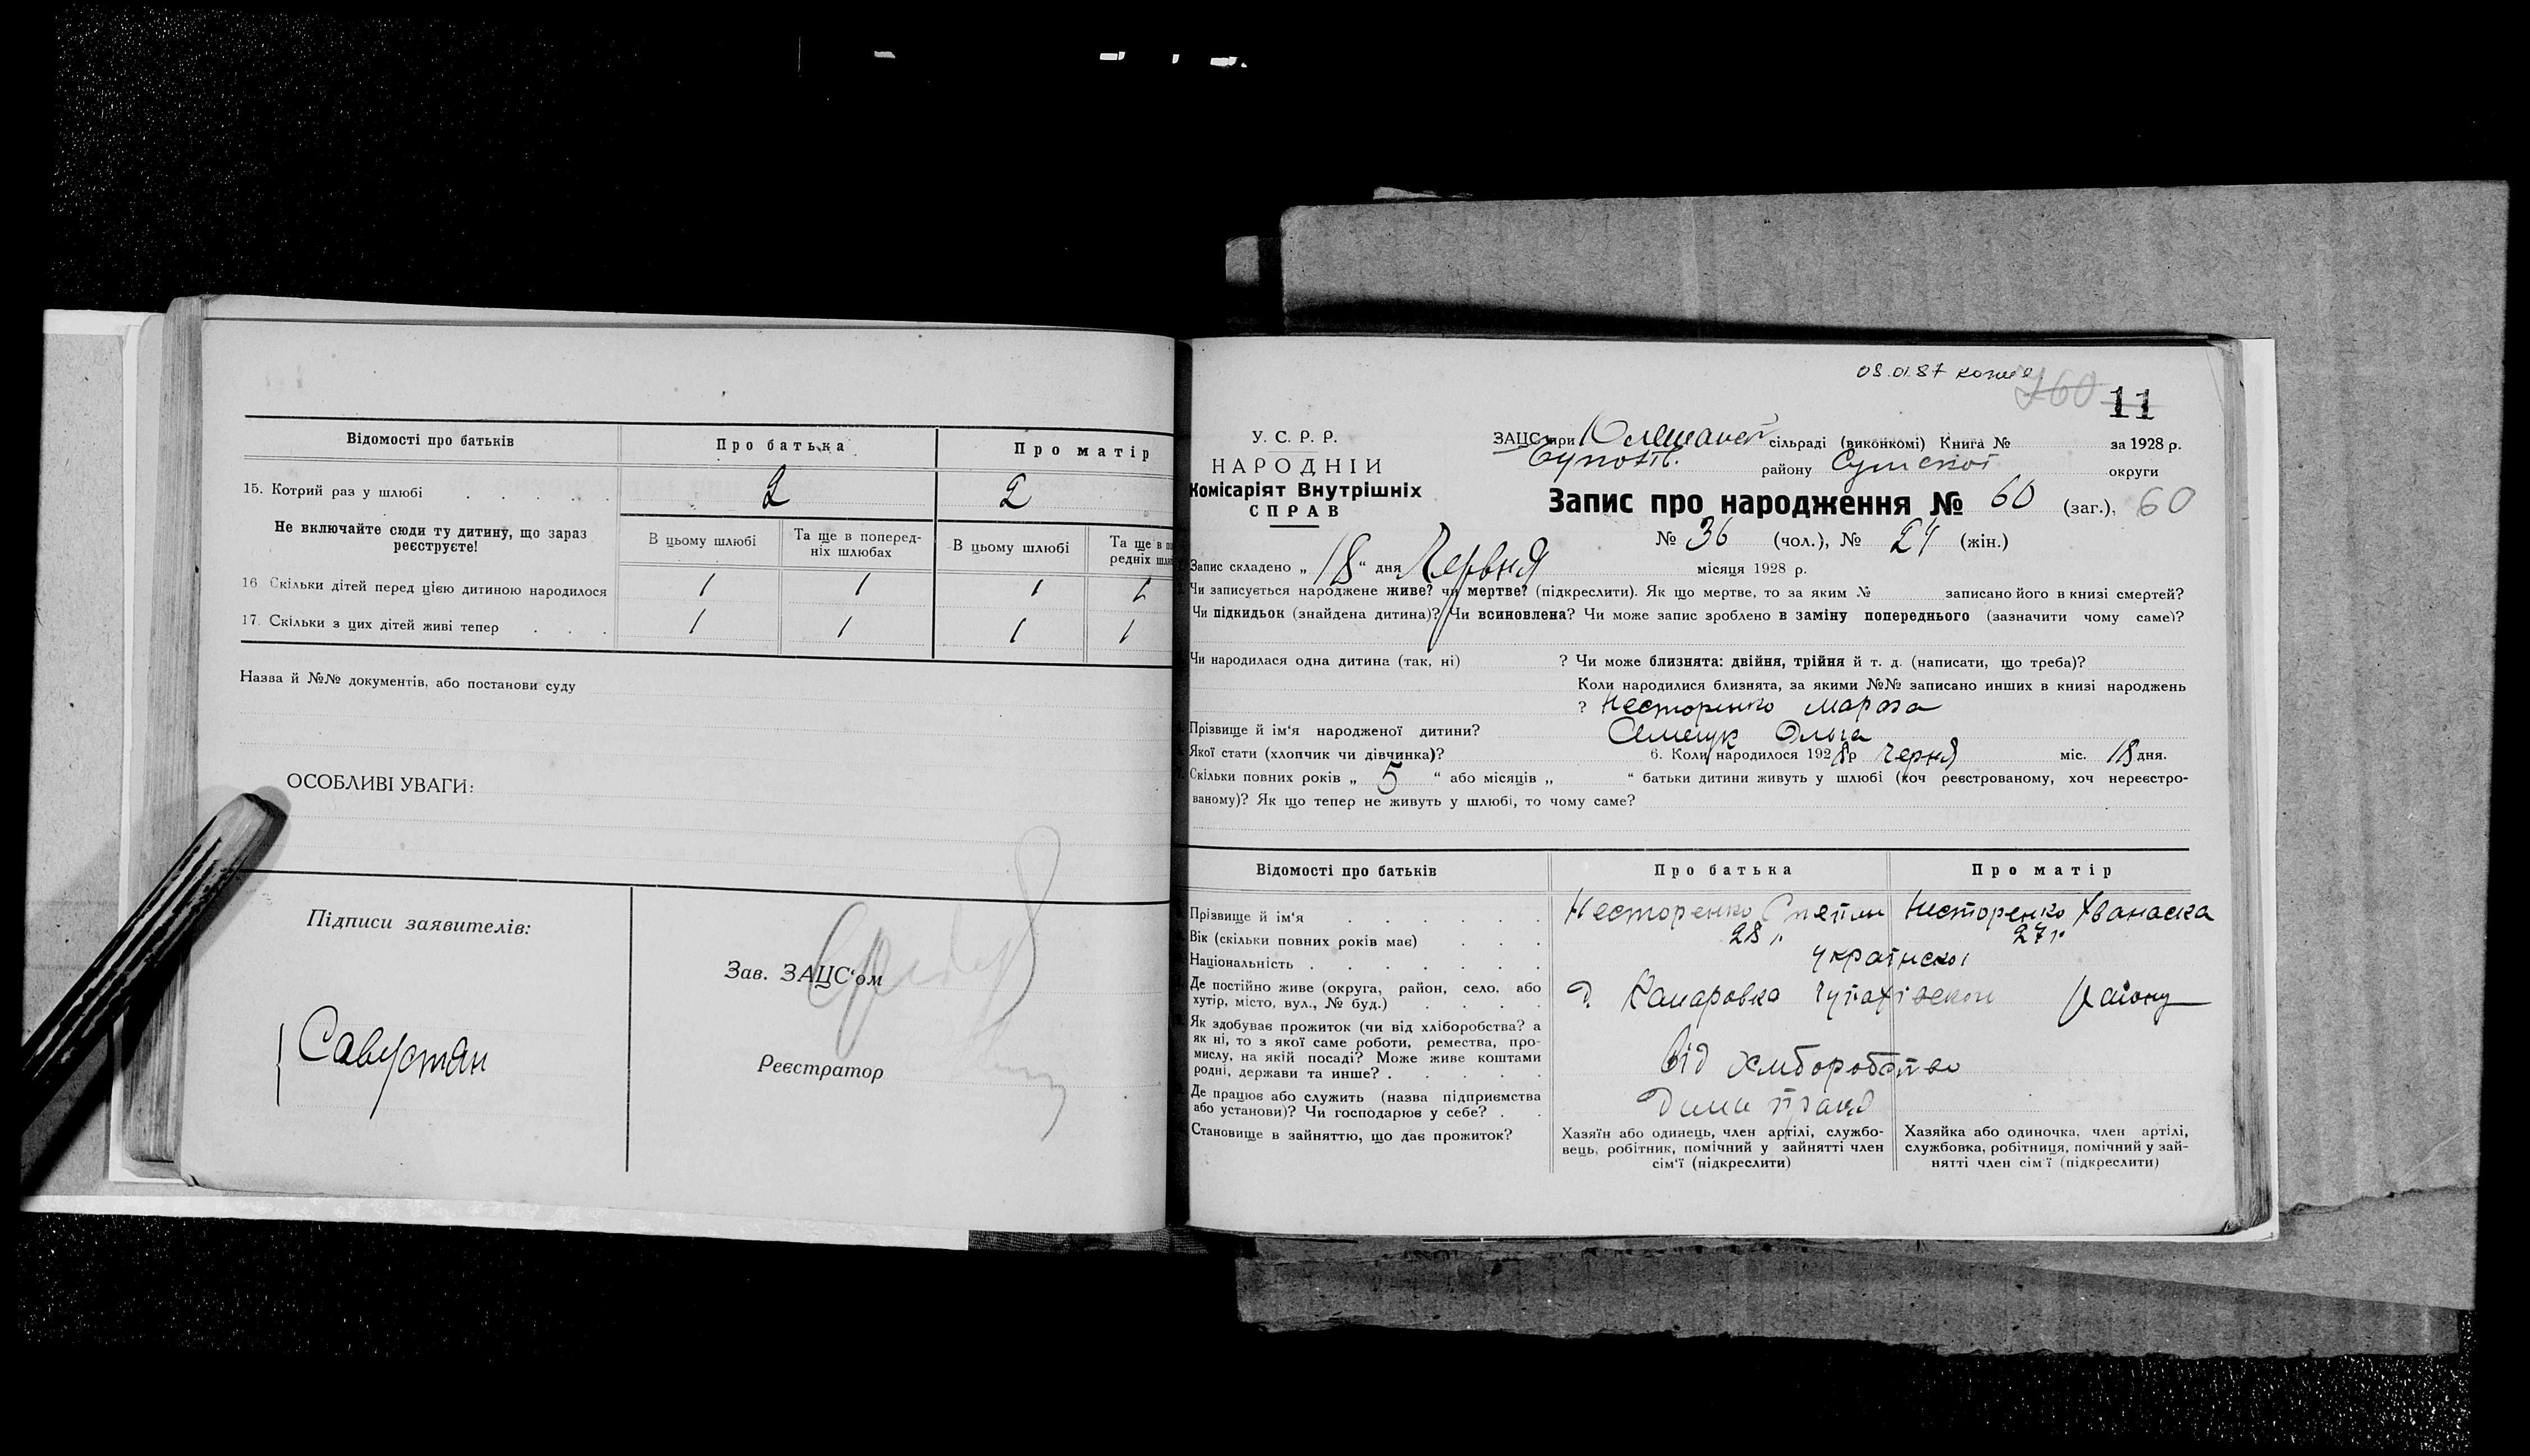 Відомості про батьків
Про батька
Про матір
15. Котрий раз у шлюбі . . . . . 2 2
Не включайте сюди ту дитину, що зараз реєструєте!
В цьому шлюбі
Та ще в поперед-
ніх шлюбах
В цьому шлюбі
Та ще в по
редніх шлю
16 Скільки дітей перед цією дитиною народилося 1 1 1 1
17. Скільки з цих дітей живі тепер . . . 1 1 1 1
Назва й №№ документів, або постанови суду
ОСОБЛИВІ УВАГИ:
Підписи заявителів:
Зав. ЗАЦС‘ом
Реєстратор
08.01.87 копия
760 11
У. С. Р. Р.
НАРОДНІЙ
Комісаріят Внутрішніх
СПРАВ
ЗАЦС при сільраді (виконкомі) Книга № за 1928 р.
району Сумської округи
Запис про народження № 60 (заг.), 60
№ 36 (чол.), № 24 (жін.)
Запис складено „ 18 “ дня Червня місяця 1928 р.
Чи записується народжене живе? чи мертве? (підкреслити). Як що мертве, то за яким № записано його в книзі смертей?
Чи підкидьок (знайдена дитина)? Чи всиновлена? Чи може запис зроблено в заміну попереднього (зазначити чому саме)?
Чи народилася одна дитина (так, ні) ? Чи може близнята: двійня, трійня й т. д. (написати, що треба)?
Коли народилися близнята, за якими №№ записано инших в книзі народжень
? Несторенко
Прізвище й ім‘я народженої дитини? Ольга
Якої стати (хлопчик чи дівчинка)? 6. Коли народилося 1928р черня міс. 18 дня.
Скільки повних років „ 5 “ або місяців „ “ батьки дитини живуть у шлюбі (хоч реєстрованому, хоч нереєстро-
ваному)? Як що тепер не живуть у шлюбі, то чому саме?
Відомості про батьків
Про батька
Про матір
Прізвище й ім‘я . . . . . . Несторенко Несторенко
Вік (скільки повних років має) . . . 28 р. 27 р.
Національність . . . . . . . української
Де постійно живе (округа, район, село, або
хутір, місто, вул., № буд.) . . . . району
Як здобуває прожиток (чи від хліборобства? а
як ні, то з якої саме роботи, ремества, про-
мислу, на якій посаді? Може живе коштами
родні, держави та инше? . . . . . від хліборобство
Де працює або служить (назва підприємства
або установи)? Чи господарює у себе? . .
Становище в зайняттю, що дає прожиток?
Хазяїн або одинець, член артілі, службо-
вець, робітник, помічний у зайнятті член
сім‘ї (підкреслити)
Хазяйка або одиночка, член артілі,
службовка, робітниця, помічний у зай-
нятті член сім‘ї (підкреслити)